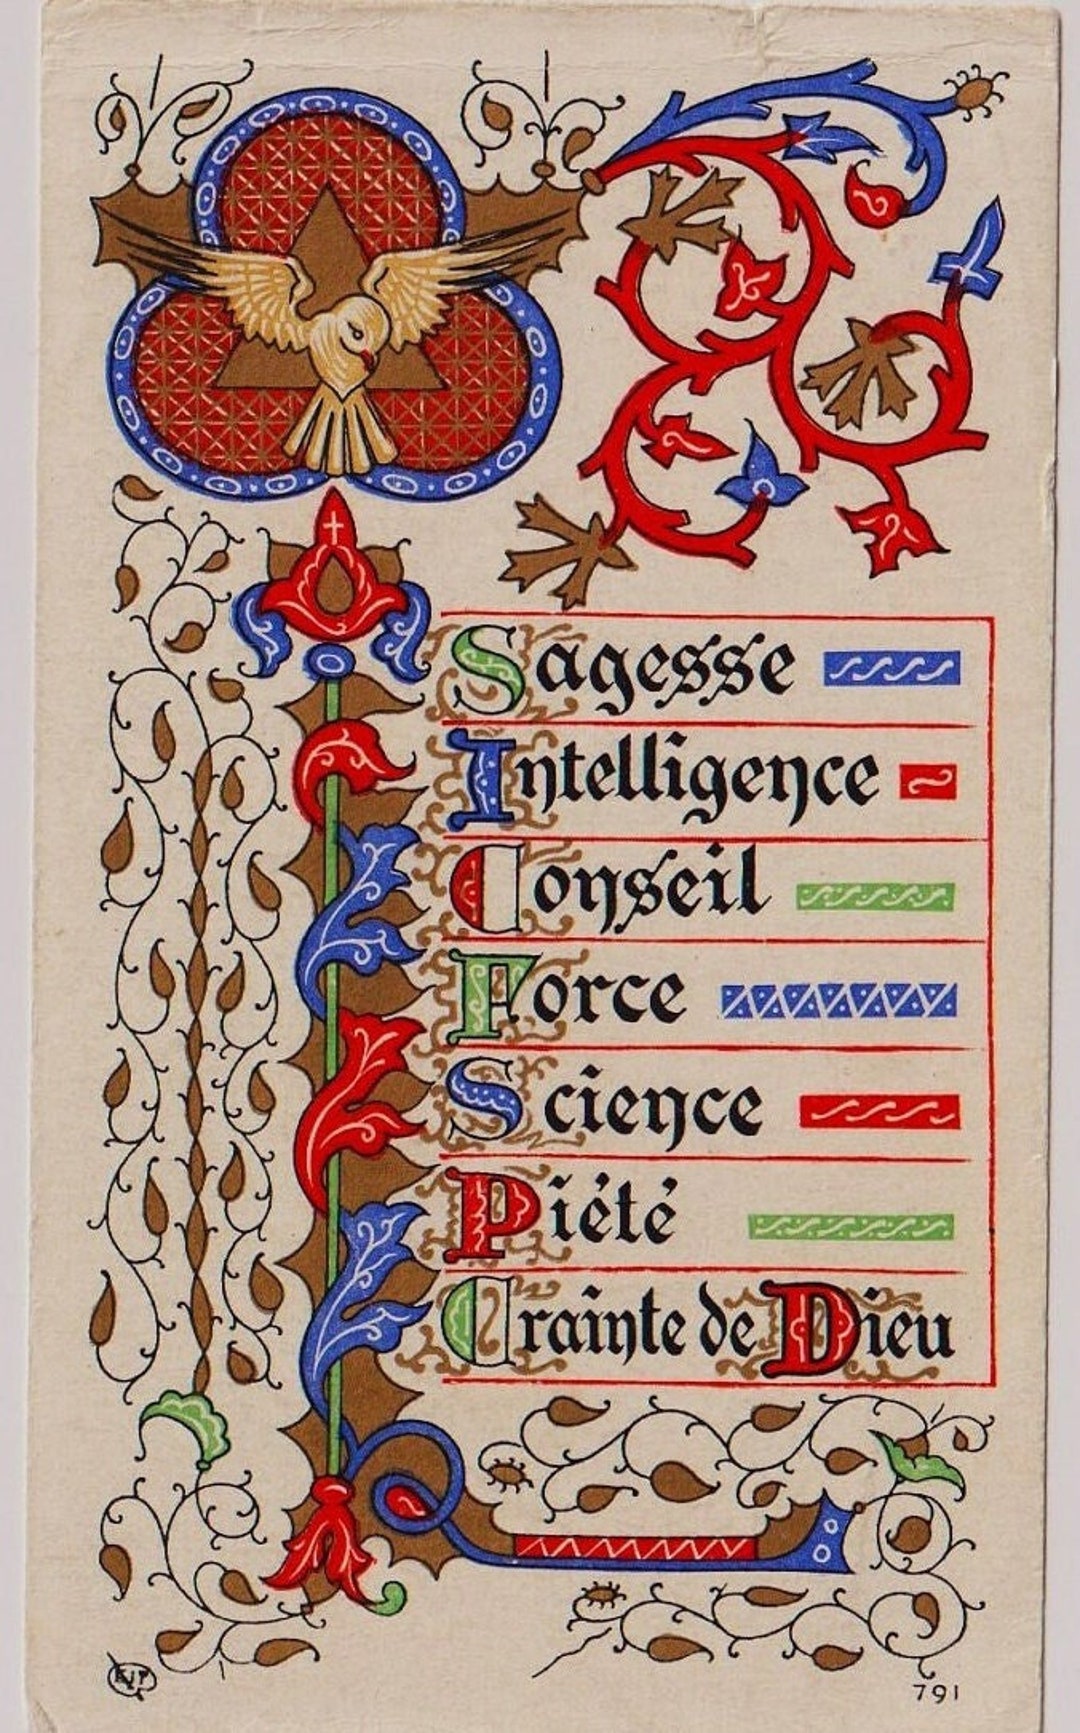 Sagesse
Intelligence
Conseil
Force
Science
Piété
Crainte de Dieu
791